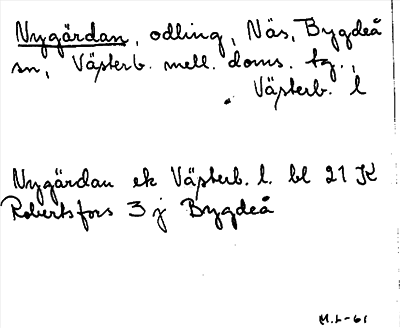 Nygärdan, odling, Näs, Bygdeå
sn, Västerb. mell. doms. tg.,
Västerb. l
Nygärdan ek Västerb. l. bl 21 K
Robertsfors 3 j Bygdeå
M.L-61